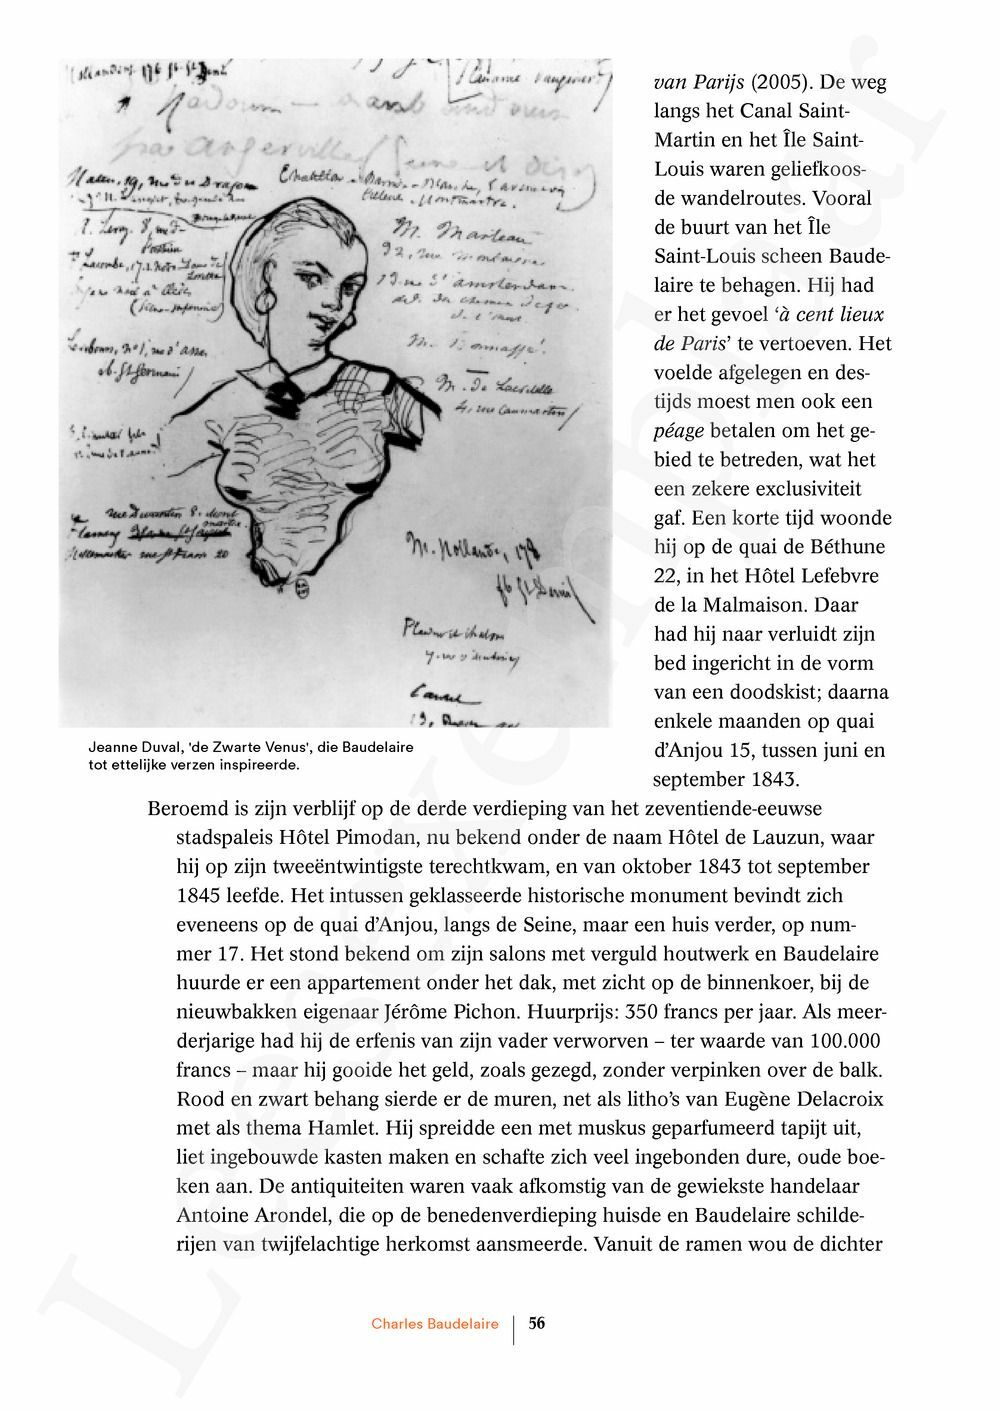 M. Marteau
M. Hollande, 178
fb St Denis
van Parijs (2005). De weg
langs het Canal Saint-
Martin en het Île Saint-
Louis waren geliefkoos-
de wandelroutes. Vooral
de buurt van het Île
Saint-Louis scheen Baude-
laire te behagen. Hij had
er het gevoel ‘à cent lieux
de Paris’ te vertoeven. Het
voelde afgelegen en des-
tijds moest men ook een
péage betalen om het ge-
bied te betreden, wat het
een zekere exclusiviteit
gaf. Een korte tijd woonde
hij op de quai de Béthune
22, in het Hôtel Lefebvre
de la Malmaison. Daar
had hij naar verluidt zijn
bed ingericht in de vorm
van een doodskist; daarna
enkele maanden op quai
d’Anjou 15, tussen juni en
september 1843.
Jeanne Duval, 'de Zwarte Venus', die Baudelaire
tot ettelijke verzen inspireerde.
Beroemd is zijn verblijf op de derde verdieping van het zeventiende-eeuwse
stadspaleis Hôtel Pimodan, nu bekend onder de naam Hôtel de Lauzun, waar
hij op zijn tweeëntwintigste terechtkwam, en van oktober 1843 tot september
1845 leefde. Het intussen geklasseerde historische monument bevindt zich
eveneens op de quai d’Anjou, langs de Seine, maar een huis verder, op num-
mer 17. Het stond bekend om zijn salons met verguld houtwerk en Baudelaire
huurde er een appartement onder het dak, met zicht op de binnenkoer, bij de
nieuwbakken eigenaar Jérôme Pichon. Huurprijs: 350 francs per jaar. Als meer-
derjarige had hij de erfenis van zijn vader verworven – ter waarde van 100.000
francs – maar hij gooide het geld, zoals gezegd, zonder verpinken over de balk.
Rood en zwart behang sierde er de muren, net als litho’s van Eugène Delacroix
met als thema Hamlet. Hij spreidde een met muskus geparfumeerd tapijt uit,
liet ingebouwde kasten maken en schafte zich veel ingebonden dure, oude boe-
ken aan. De antiquiteiten waren vaak afkomstig van de gewiekste handelaar
Antoine Arondel, die op de benedenverdieping huisde en Baudelaire schilde-
rijen van twijfelachtige herkomst aansmeerde. Vanuit de ramen wou de dichter
Charles Baudelaire 56
Leesexemplaar